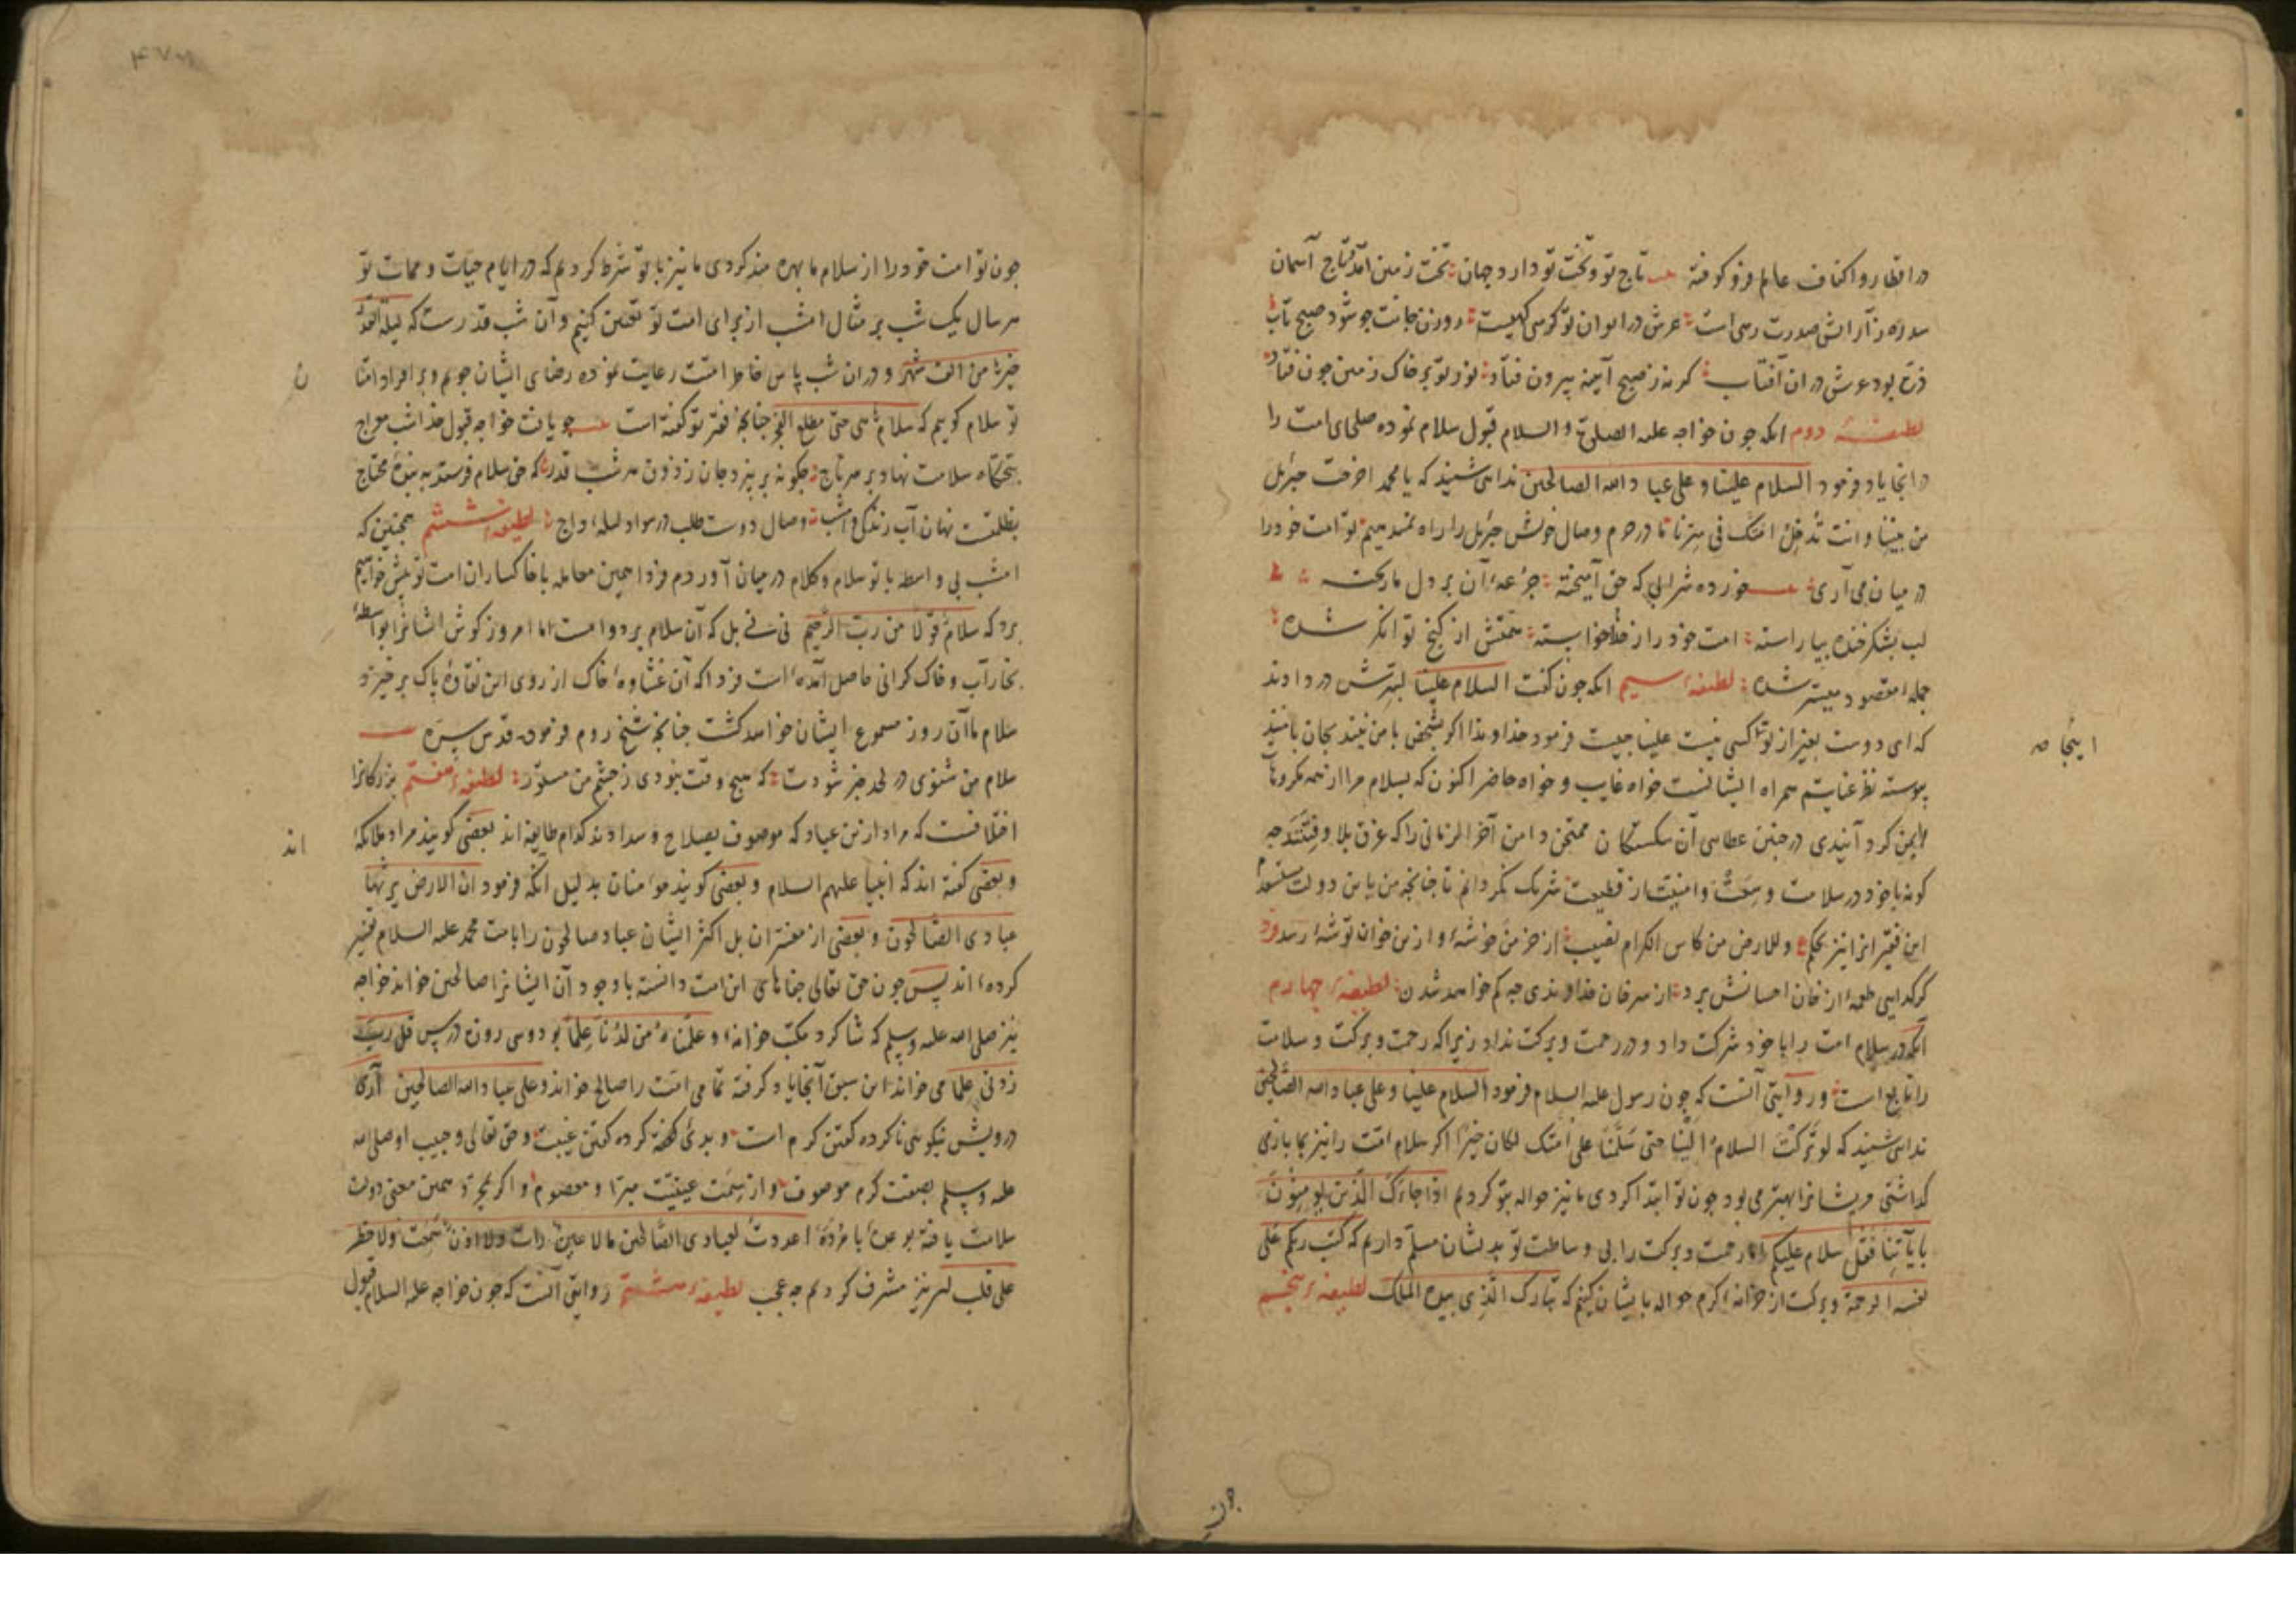 در اقطار و اکناف عالم فرو کوفته تاج تو و تخت تو دارد جهان تخت زمین آمد و تاج آسمان
سدره ز آرایش صدرت رهی است عرش در ایوان تو کرسی کهیست روزن جانت چو شود صبح تاب
ذره بود عرش در ان آفتاب کر نه ز صبح آینه بیرون فتاد نور تو بر خاک زمین جون فتاد
لطیفهٔ دوم انکه جون خواجه علیه الصلوة و السلام قبول سلام نموده صلحای امت را
در انجا یاد فرمود السلام علینا و علی عباد الله الصالحین ندا شنید که یا محمد اخرجت جبرئیل
من بیننا و انت تُدخِلُ امتک فی سرنا ما در حرم وصال خویش جبرئیل را راه نمیدهیم تو امت خود را
در میان می آری خورده شرابی که حق آمیخته جرعهٔ آن بر دل ما ریخته
لب بشکر خنده بیاراسته امت خود را ز خدا خواسته همتش از کنج توانکر شده
جمله مقصود میسر شده لطیفهٔ سیم انکه جون کفت السلام علینا بسرش در دادند
که ای دوست بغیر از تو کسی نیست علینا جیست فرمود خداوندا اکر بشخص با من نیند بجان با منند
اینجا صه
پیوسته نظر عنایتم همراه ایشانست خواه غایب و خواه حاضر اکنون که بسلام مرا از همه مکروهات
ایمن کردانیدی در جنین عطا آن شکستکان ممتحن دامن آخر الزمانی را که غرق بلا و فتنند جه
کونه با خود در سلامت و امنیت از قطیعت شریک نکردانم تا جنانجه من یا من دولت
این فقیرانرا نیز بحکم ع وللارض من کاس الکرام نصیب از خرمن خوشهٔ و ازین خوان توشهٔ رسد فرد
کر کدایی طعمه از خان احسانش برد از سر خان خداوندی جه کم خواهد شدن لطیفهٔ چهارم
آنکه در سلام امت را با خود شرکت داد و در رحمت و برکت نداد زیرا که رحمت و برکت و سلامت
را تابع است و روایتی آنست که جون رسول علیه السلام فرمود السلام علینا و علی عباد الله الصالحین
ندا شنید که لو ترکت السلام الینا حتی سلمنا علی امتک لکان خیرا اکر سلام امت را نیز بما باز
کذاشتی مر ایشانرا بهتر می بود جون تو ابتدا کردی ما نیز حواله بتو کردیم اذا جاءک الذین یؤمنون
بایاتنا فقل سلام علیکم اما رحمت و برکت را بی وساطت تو بدیشان مسلم داریم که کتب ربکم علی
نفسه الرحمة و برکت از خزانهٔ کرم حواله بایشان کنیم که تبارک الذی بیده الملک لطیفهٔ پنجم
جون
۴۷۸
جون تو امت خود را از سلام ما بهره مند کردی ما نیز با تو شرط کردیم که در ایام حیات و ممات تو
هر سال یک شب بر مثال امشب از برای امت تو تعیین کنیم و آن شب قدرست که لیلة القدر
خیر من الف شهر و در ان شب پاس خاطر امتت رعایت نموده رضای ایشان جویم و بر افراد امت
ن
تو سلام کوییم که سلام هی حتی مطلع الفجر جنانجه فقیر تو کفته است جو یافت خواجه قبول خدا شب معراج
بتختکاه سلامت نهاد بر سر تاج جکونه بر نپرد جان ز ذوق هر شب قدر که حق سلام فرستد به بندهٔ محتاج
بظلمت نهان آب زندکی و امشب وصال دوست طلب در سواد لیلهٔ داج لطیفهٔ ششم همجنین که
امشب بی واسطه با تو سلام و کلام در میان آوردم فردا همین معامله با خاکساران امت تو پیش خواهیم
برد که سلام قولا من رب الرحیم نی نی بل که آن سلام بر دوامست اما امروز کوش ایشانرا بواسطهٔ
بخار آب و خاک کرانی حاصل آمده است فردا که آن غشاوهٔ خاک از روی این نقاوهٔ پاک برخیزد
سلام ما آن روز مسموع ایشان خواهد کشت جنانجه شیخ روم فرموده قدس سره
سلام من شنوی در لحد خبر شودت که هیچ وقت نبودی ز جشم من مستور لطیفهٔ هفتم بزرکانرا
اختلافست که مراد ازین عباد که موصوف بصلاح و سدادند کدام طایفه اند بعضی کویند مراد ملایکه
اند
و بعضی کفته اند که انبیا علیهم السلام و بعضی کویند مؤمنان بدلیل آنکه فرمود ان الارض یرثها
عبادی الصالحون و بعضی از مفسران بل اکثر ایشان عباد صالحون را بامت محمد علیه السلام تفسیر
کرده اند پس جون حق تعالی جفاهای این امت دانسته با وجود آن ایشانرا صالحین خواند خواجه
نیز صلی الله علیه وسلم که شاکرد مکتب خزانهٔ و علمناه من لدنا علما بود و سی روزه درس قل رب
زدنی علما می خواند این سبق آنجا یاد کرفته تمامی امت را صالح خواند و علی عباد الله الصالحین آری
درویش نیکویی ناکرده کفتن کرم است و بدی کهنه کرده کفتن غیبت و حق تعالی و حبیب او صلی الله
علیه وسلم بصفت کرم موصوف و از سمت غیبت مبرا و معصوم و اکر همین معنی دولت
سلامت یافته بوعدهٔ با مژدهٔ اعددت لعبادی الصالحین ما لا عین رات ولا اذن سمعت ولا خطر
علی قلب بشر نیز مشرف کردیم جه عجب لطیفهٔ هشتم روایتی آنست که جون خواجه علیه السلام قبول